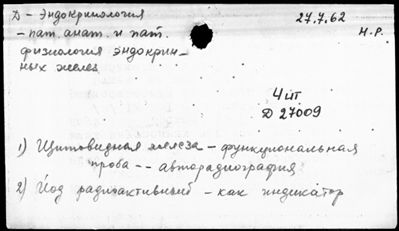 Д – Эндокринология 27.7.62
– пат. анат. и пат. Н.Р.
физиология эндокрин–
ных желез
Чит
Д 27009
1) Щитовидная железа – функциональная
проба -- авторадиография
2) Йод радиоактивный – как индикатор